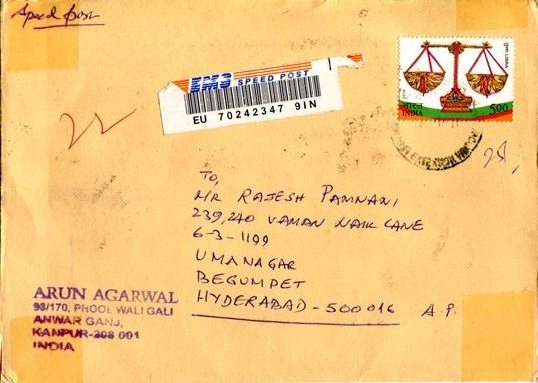 Speed post
EMS SPEED POST
EU 70242347 9IN
तुला LIBRA
भारत INDIA
500
To,
MR RAJESH PAMNANI
239,240 VAMAN NAIK LANE
6-3-1199
UMANAGAR
BEGUMPET
HYDERABAD-500016 A.P.
ARUN AGARWAL
93/170, PHOOL WALI GALI
ANWAR GANJ,
KANPUR-208 001
INDIA